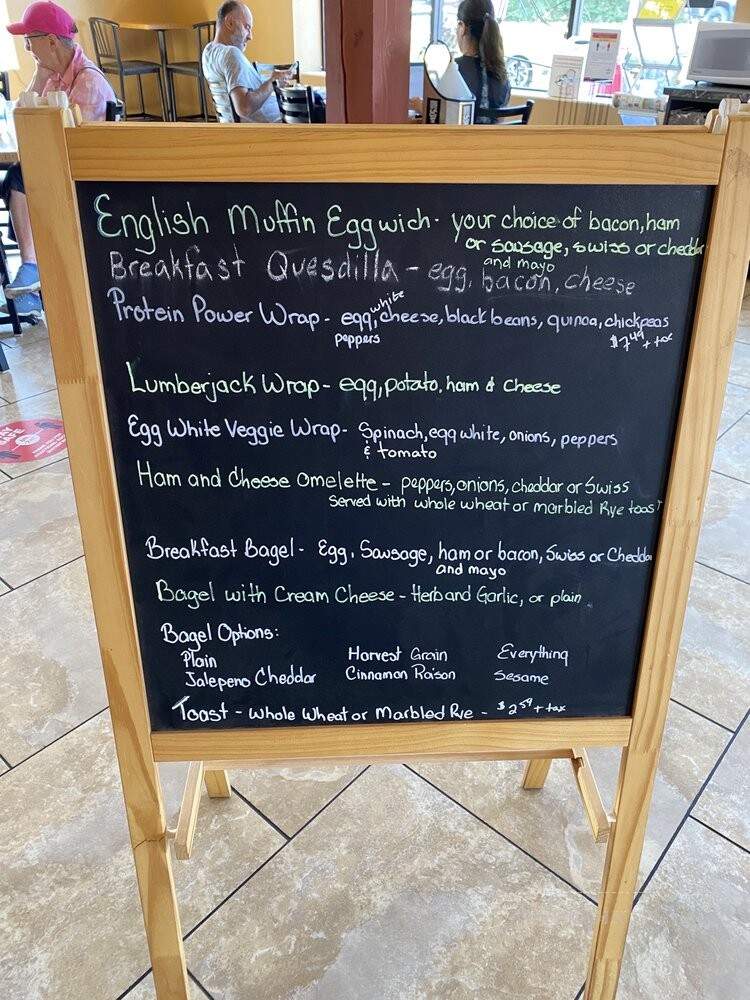 English Muffin Eggwich - your choice of bacon, ham
or sausage, swiss or cheddar
and mayo
Breakfast Quesdilla - egg, bacon, cheese
Protein Power Wrap - egg white, cheese, black beans, quinoa, chickpeas
peppers $7.49 + tax
Lumberjack Wrap - egg, potato, ham & cheese
Egg White Veggie Wrap - Spinach, egg white, onions, peppers
& tomato
Ham and Cheese Omelette - peppers, onions, cheddar or Swiss
Served with whole wheat or marbled Rye toast
Breakfast Bagel - Egg, Sausage, ham or bacon, Swiss or Cheddar
and mayo
Bagel with Cream Cheese - Herb and Garlic, or plain
Bagel Options:
Plain Harvest Grain Everything
Jalepeno Cheddar Cinnamon Raison Sesame
Toast - Whole Wheat or Marbled Rye - $2.59 + tax